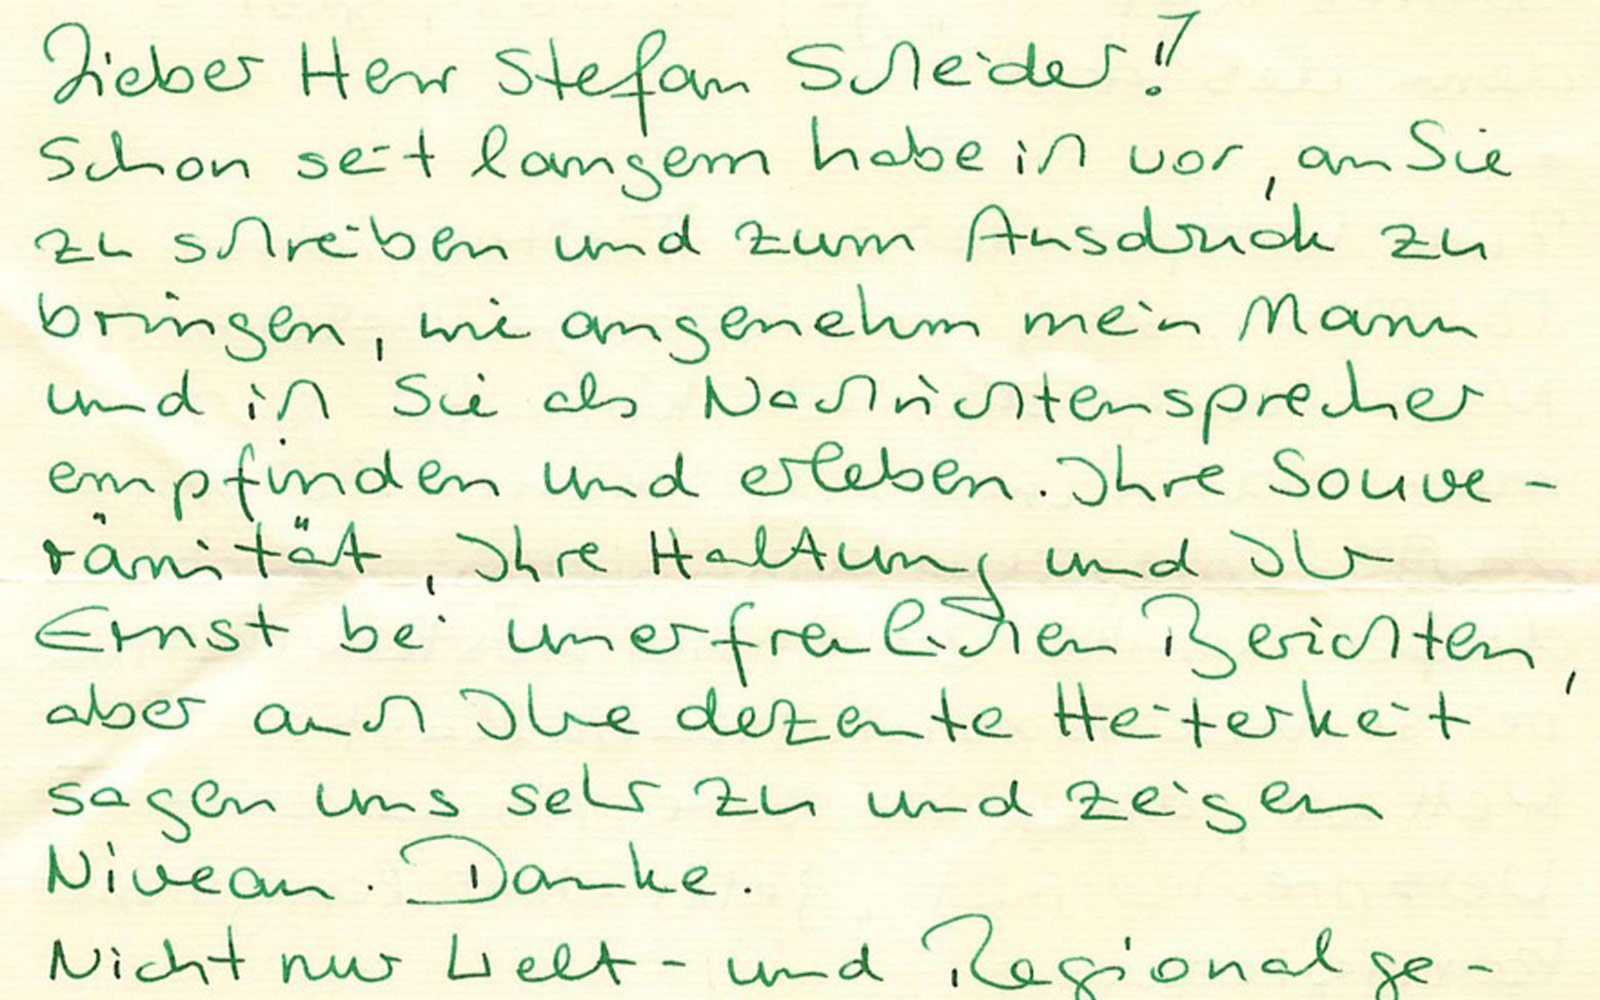 Lieber Herr Stefan Scheider!
Schon seit langem habe ich vor, an Sie
zu schreiben und zum Ausdruck zu
bringen, wie angenehm mein Mann
und ich Sie als Nachrichtensprecher
empfinden und erleben. Ihre Souve-
ränität, Ihre Haltung und Ihr
Ernst bei unerfreulichen Berichten,
aber auch Ihre dezente Heiterkeit
sagen uns sehr zu und zeigen
Niveau. Danke.
Nicht nur Welt- und Regionalge-